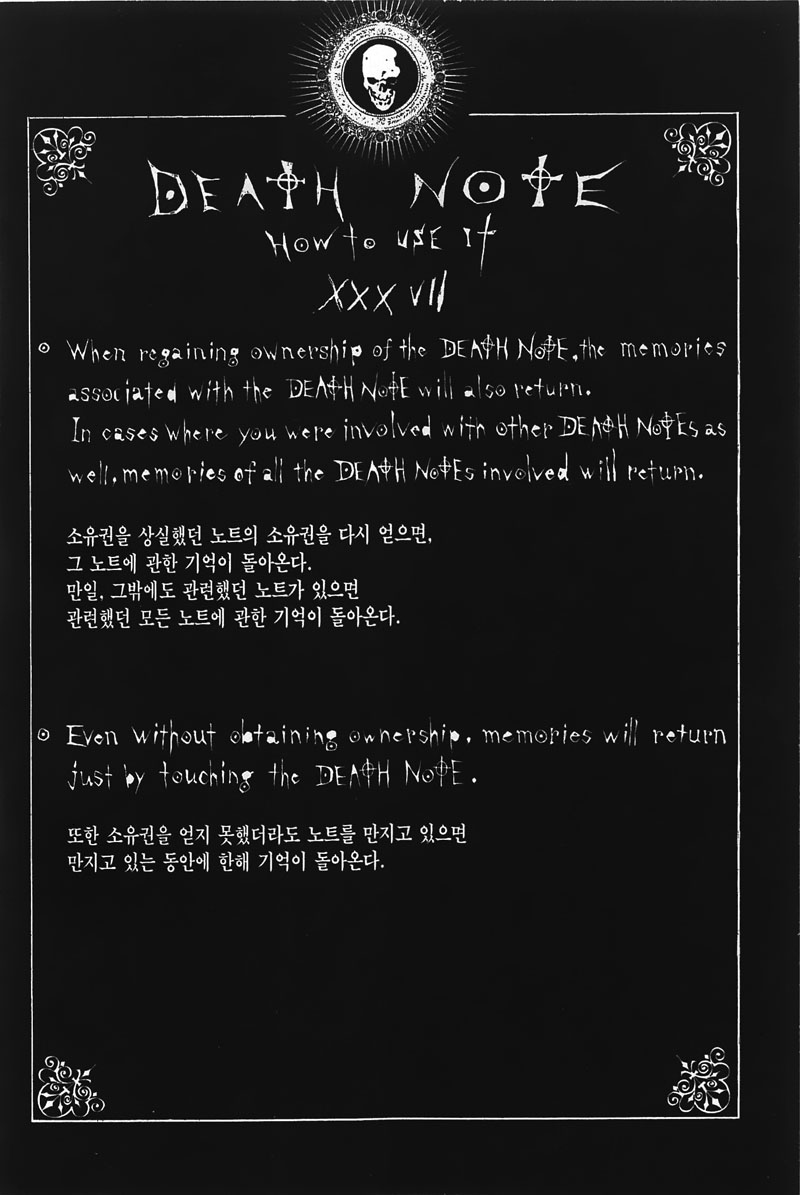 DEATH NOTE
HOW to USE It
XXXVII
When regaining ownership of the DEATH NOTE, the memories
associated with the DEATH NOTE will also return.
In cases where you were involved with other DEATH NOTEs as
well, memories of all the DEATH NOTEs involved will return.
소유권을 상실했던 노트의 소유권을 다시 얻으면,
그 노트에 관한 기억이 돌아온다.
만일, 그밖에도 관련했던 노트가 있으면
관련했던 모든 노트에 관한 기억이 돌아온다.
Even without obtaining ownership, memories will return
just by touching the DEATH NOTE.
또한 소유권을 얻지 못했더라도 노트를 만지고 있으면
만지고 있는 동안에 한해 기억이 돌아온다.